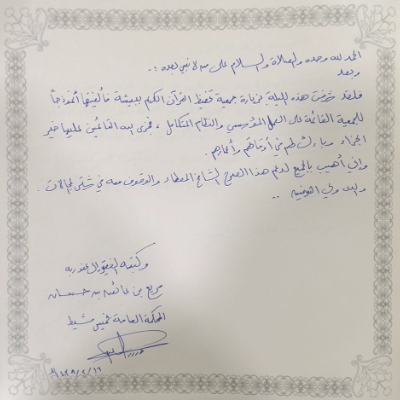 الحمد لله وحده والصلاة والسلام على من لا نبي بعده :..
وبعد
فلقد تشرفت هذه الليلة بزيارة جمعية تحفيظ القرآن الكريم ببيشة فألفيتها أنموذجاً
للجمعية القائمة على العمل المؤسسي والنظام المتكامل ، فجزى الله القائمين عليها خير
الجزاء وبارك لهم في أوقاتهم وأعمارهم .
وإني أهيب بالجميع لدعم هذا الصرح الشامخ بالعطاء والوقوف معه في شتى المجالات .
والله ولي التوفيق ..
وكتبه الفقير إلى عفو ربه
مريع بن عائض بن
المحكمة العامة بخميس مشيط